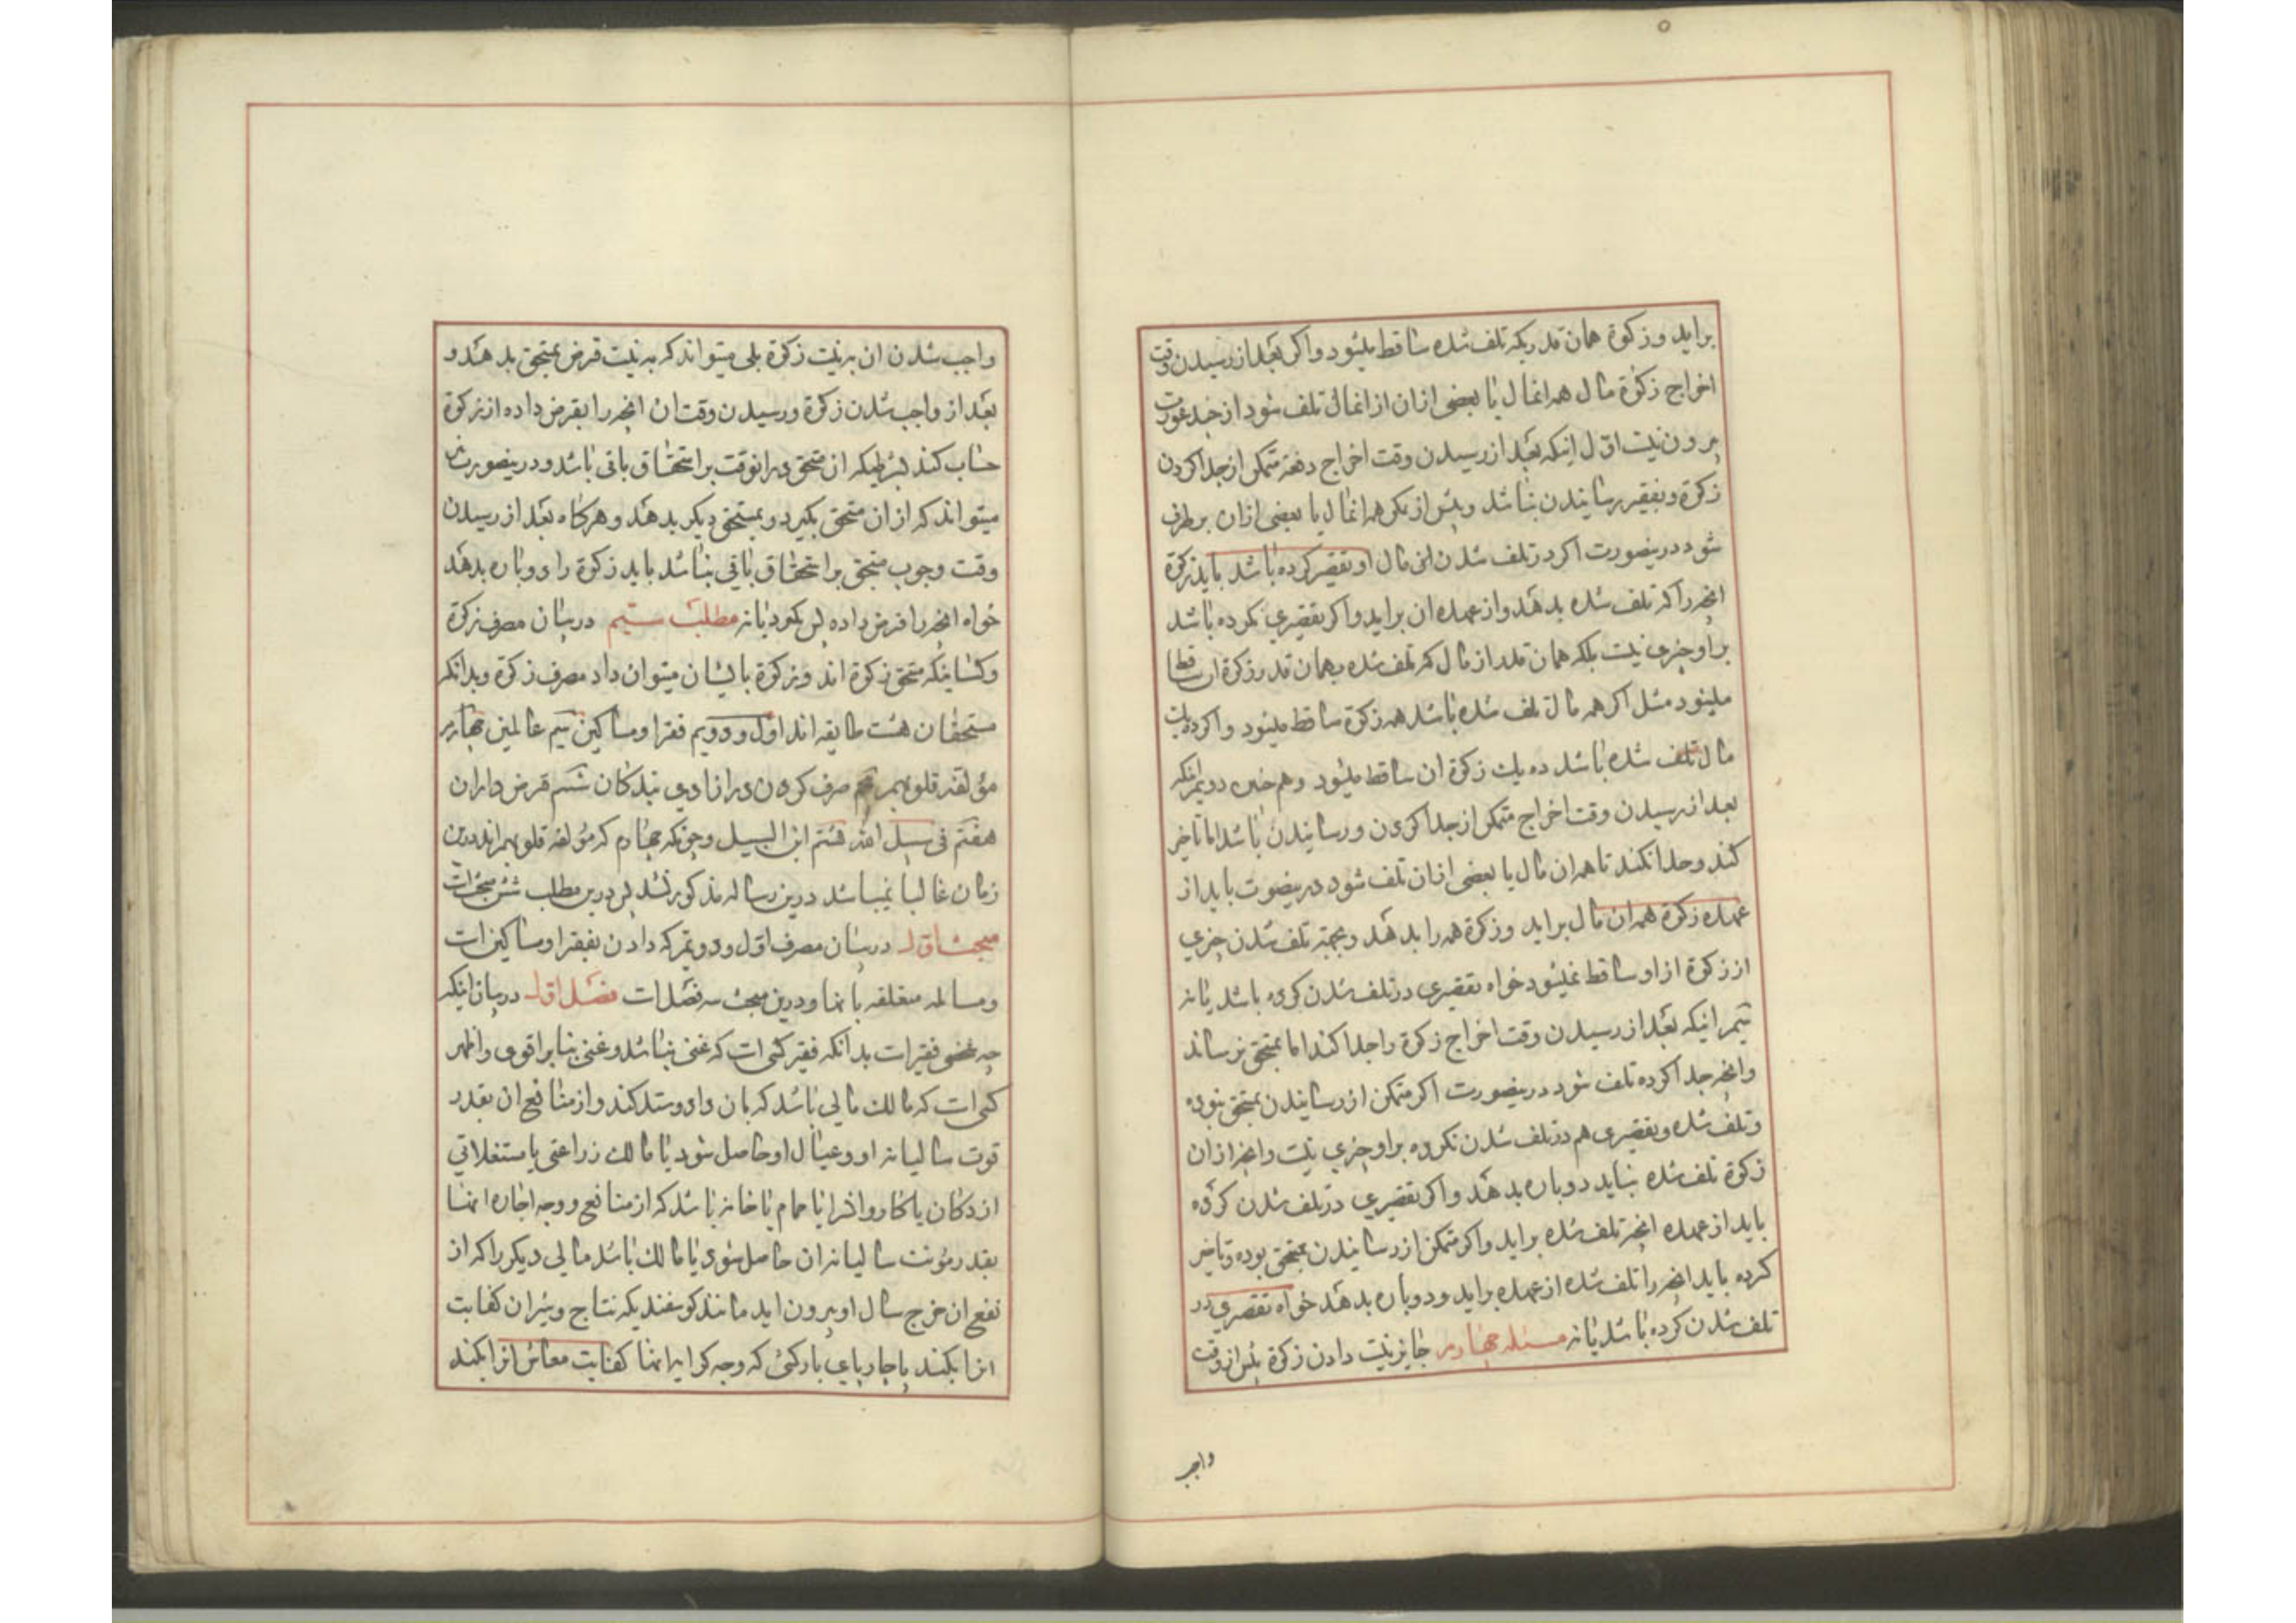 براید و زکوة همان قدریکه تلف شده ساقط میشود و اکر بعد از رسیدن وقت
اخراج زکوة مال همه انمال یا بعضی ازان از انمال تلف شود از چند صورت
برون نیست اول اینکه بعد از رسیدن وقت اخراج دفعة متمکن از جدا کردن
زکوة و بفقیر رسانیدن نباشد و پیش از تمکن همه انمال یا بعضی ازان برطرف
شود درینصورت اکر در تلف شدن این مال او تقصیر کرده باشد باید زکوة
انچه را که تلف شده بدهد و از عهده ان براید و اکر تقصیری نکرده باشد
بر او چیزی نیست بلکه همان قدر از مال که تلف شده بهمان قدر زکوة ان ساقط
میشود مثل اکر همه مال تلف شده باشد همه زکوة ساقط میشود و اکر ده یك
مال تلف شده باشد ده یك زکوة ان ساقط میشود و هم چنین دویم اینکه
بعد از رسیدن وقت اخراج متمکن از جدا کردن و رسانیدن باشد اما تاخیر
کند و جدا نکند تا همه ان مال یا بعضی ازان تلف شود درینصوت باید از
عهده زکوة همه ان مال براید و زکوة همه را بدهد و بجهة تلف شدن چیزی
از زکوة از او ساقط نمیشود خواه تقصیری در تلف شدن کرده باشد یا نه
سیم اینکه بعد از رسیدن وقت اخراج زکوة را جدا کند اما بمستحق نرساند
و انچه جدا کرده تلف شود درینصورت اکر متمکن از رسانیدن بمستحق نبوده
و تلف شده و تقصیری هم در تلف شدن نکرده بر او چیزی نیست و انچه از ان
زکوة تلف شده نباید دوباره بدهد و اکر تقصیری در تلف شدن کرده
باید از عهده انچه تلف شده براید و اکر متمکن از رسانیدن بمستحق بوده و تاخیر
کرده باید انچه را تلف شده از عهده براید و دوباره بدهد خواه تقصیری در
تلف شدن کرده باشد یا نه مسئله چهارم جایز نیست دادن زکوة پیش از وقت
واجب
واجب شدن ان به نیت زکوة بلی میتواند که به نیت قرض بمستحق بدهد و
بعد از واجب شدن زکوة و رسیدن وقت ان انچه را بقرض داده از زکوة
حساب کند بشرطیکه ان مستحق درانوقت بر استحقاق باقی باشد و درینصورت
میتواند که از ان مستحق بکیرد و بمستحق دیکر بدهد و هرکاه بعد از رسیدن
وقت وجوب مستحق بر استحقاق باقی نباشد باید زکوة را دوباره بدهد
خواه انچه را قرض داده پس بکیرد یا نه مطلب سیم در بیان مصرف زکوة
و کسانیکه مستحق زکوة اند و زکوة بایشان میتوان داد مصرف زکوة و بدانکه
مستحقان هشت طایفه اند اول و دویم فقرا و مساکین سیم عاملین چهارم
مؤلفة قلوبهم پنجم صرف کردن در ازادی بندکان ششم قرض داران
هفتم فی سبیل الله هشتم ابن السبیل و چونکه چهارم که مؤلفة قلوبهم اند درین
زمان غالبا نمیباشد درین رساله مذکور نشد پس درین مطلب شش مبحث است
مبحث اول در بیان مصرف اول و دویم که دادن بفقرا و مساکین است
و مسائل متعلقه بانها و درین مبحث سه فصل است فصل اول در بیان اینکه
چه شخص فقیر است بدانکه فقیر کسی است که غنی نباشد و غنی بنا بر اقوی و اظهر
کسی است که مالك مالی باشد که بان داد و ستد کند و از منافع ان بقدر
قوت سالیانه او و عیال او حاصل شود یا مالك زراعتی یا مستغلاتی
از دکان یا کاروانسرا یا حمام یا خانه باشد که از منافع و وجه اجاره انها
بقدر مؤنت سالیانه ان حاصل شود یا مالك باشد مالی دیکر را که از
نفع ان خرج سال او برون اید مانند کوسفندیکه نتاج و شیر ان کفایت
انرا بکند یا چارپای بارکش که وجه کرایه انها کفایت معاش انرا بکند